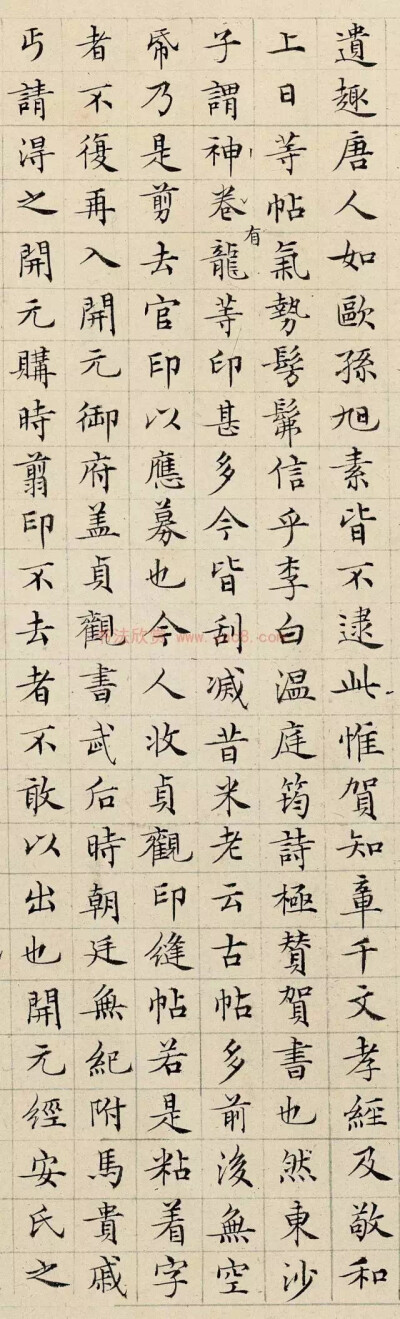 遺趣唐人如歐孫旭素皆不逮此惟賀知章千文孝經及敬和
上日䓁帖氣勢髣髴信乎李白温庭筠詩極贊賀書也然東沙
子謂神卷有龍䓁印甚多今皆刮滅昔米老云古帖多前後無空
帋乃是剪去官印以應募也今人收貞觀印縫帖若是粘着字
者不復再入開元御府盖貞觀書武后時朝廷無紀附馬貴戚
丐請淂之開元購時翦印不去者不敢以出也開元經安氏之